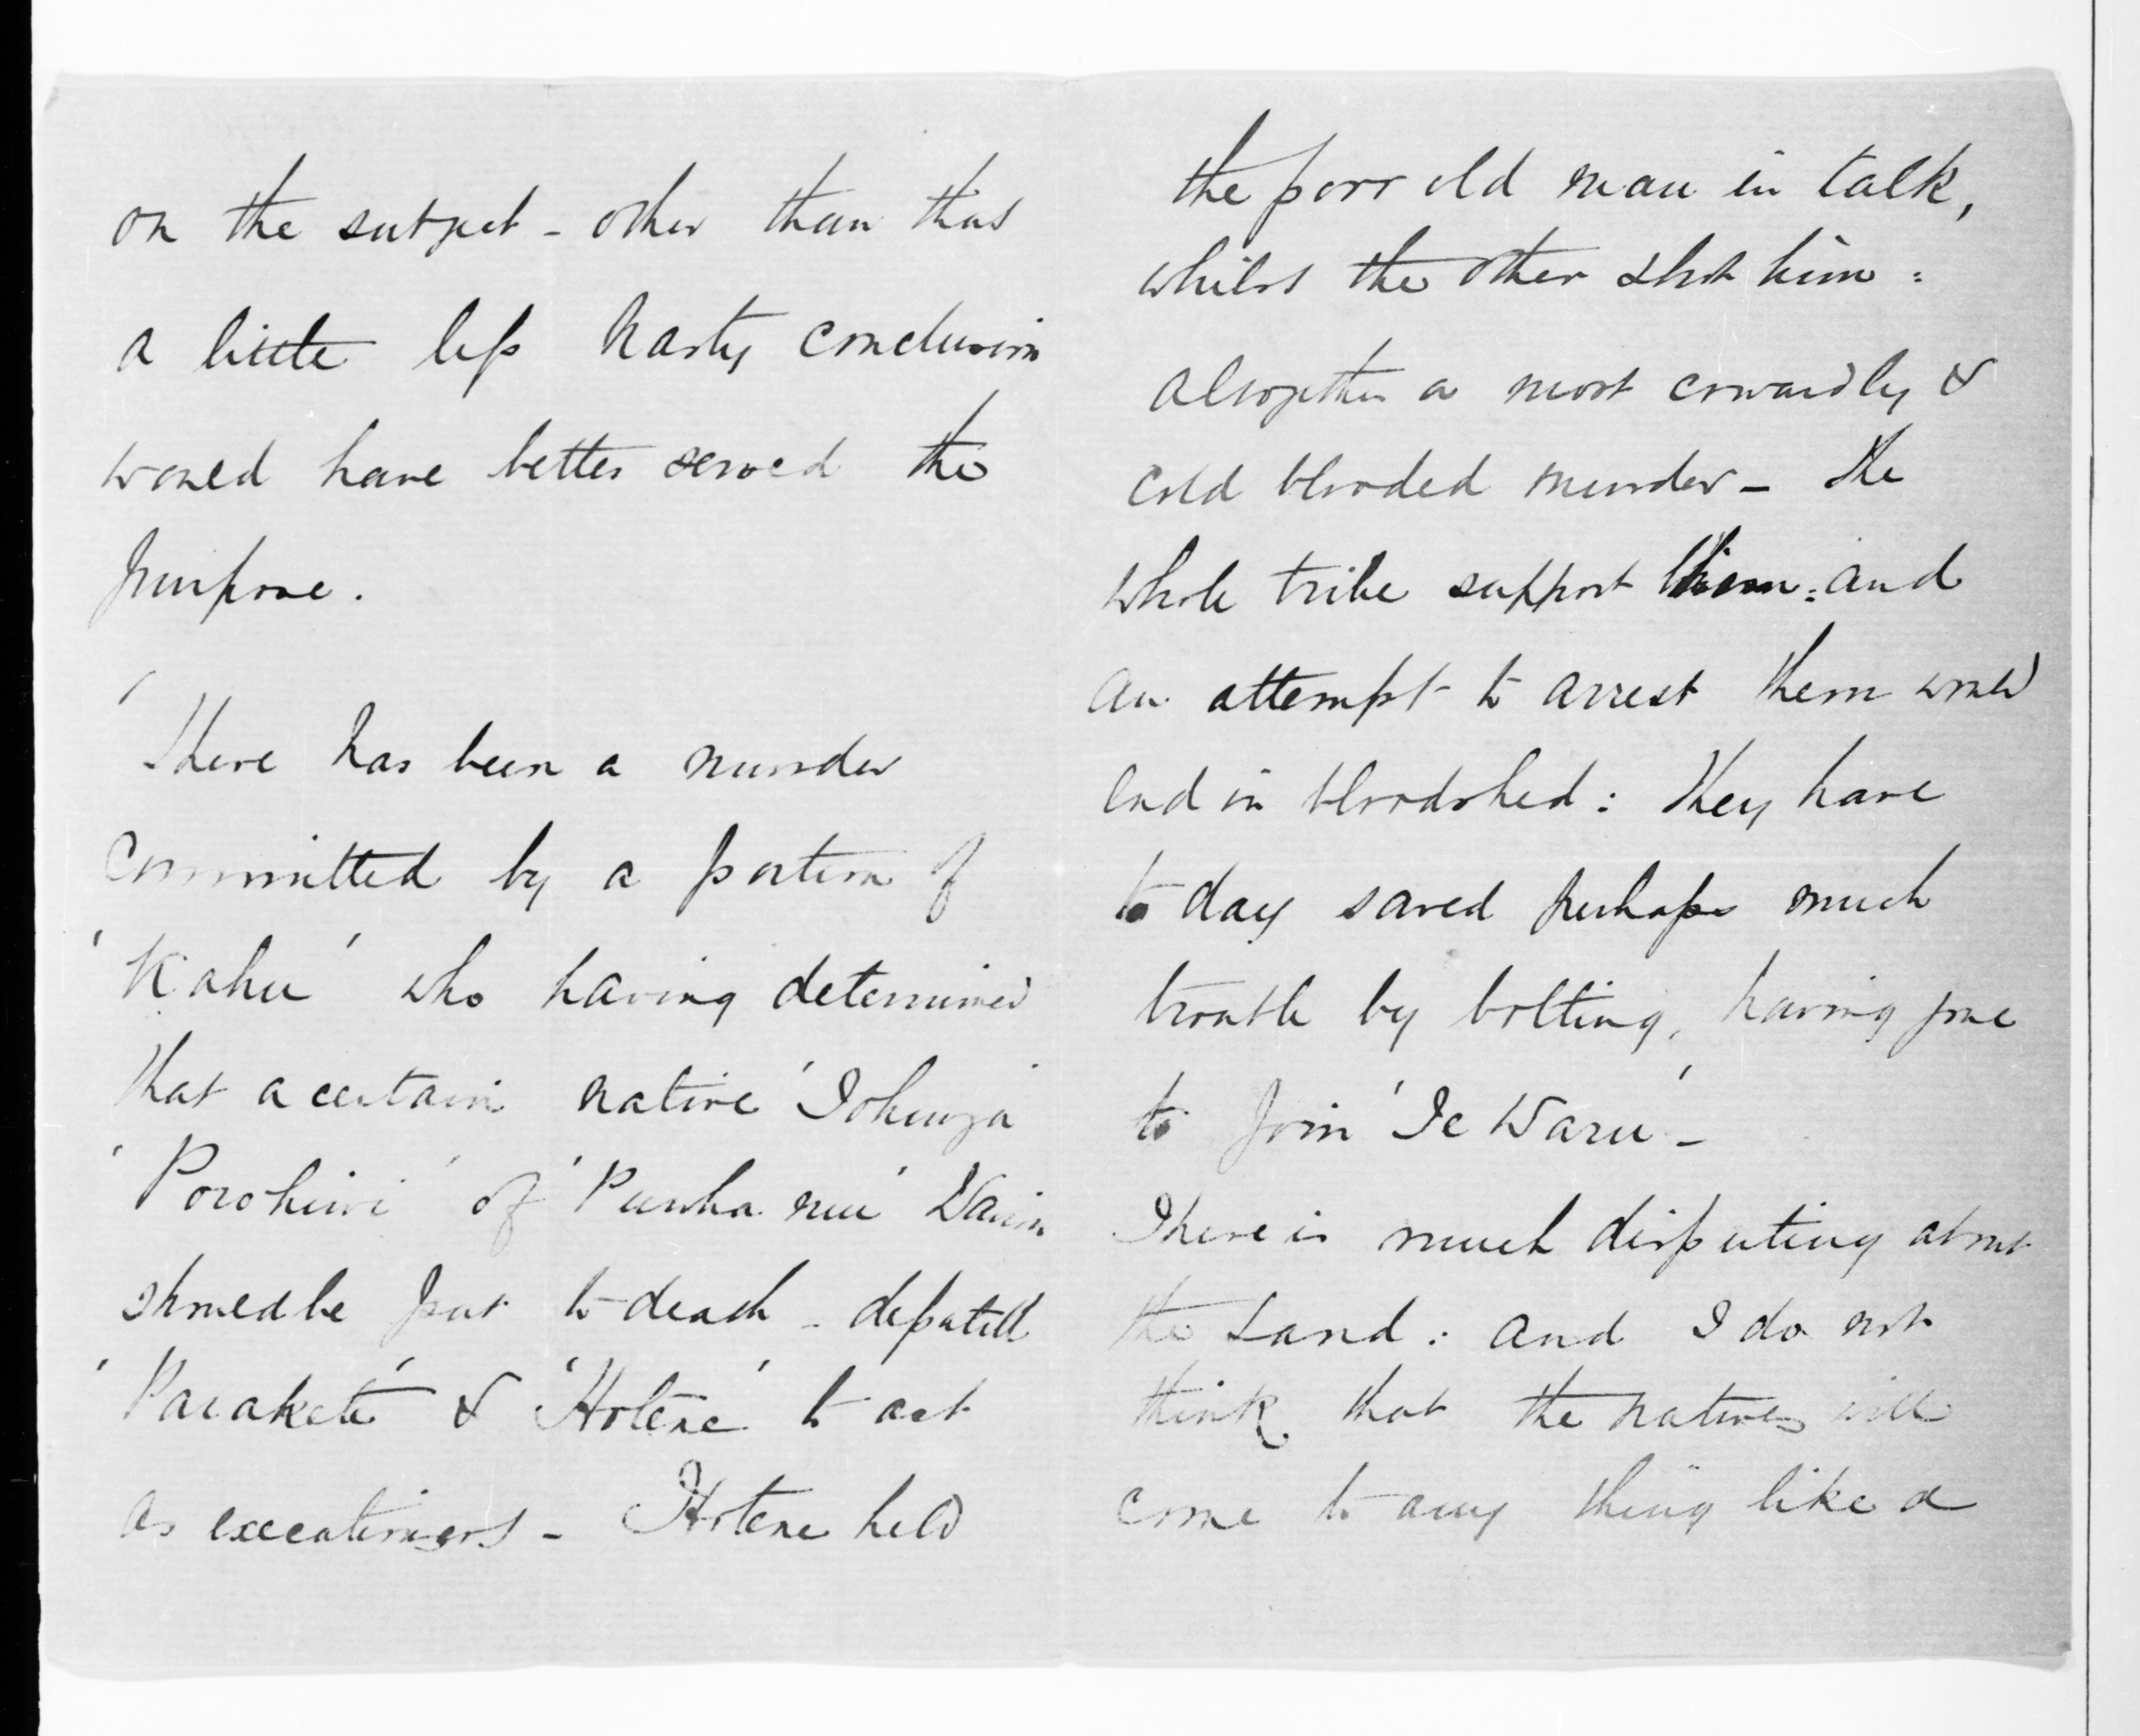 on the subject - other than that
a little less hasty conclusion
would have better served the
purpose.
There has been a murder
committed by a portion of
'Kahu' who having determined
that a certain native 'Tohunga'
'Porohiwi' of 'Puwha nui' Wairoa
should be put to death - deputed
'Parakete' & 'Hotene' to act
as executioners - Hotene held
the poor old man in talk,
whilst the other shot him:
altogether a most cowardly &
cold blooded murder - The
whole tribe support them: and
an attempt to arrest them would
end in bloodshed: They have
to day saved perhaps much
trouble by bolting, having gone
to join 'Te Waru' -
There is much disputing about
the Land: and I do not
think that the natives will
come to any thing like a